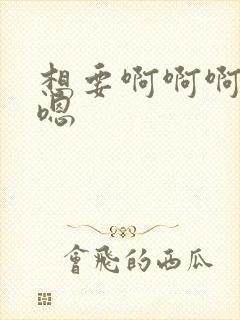 想要啊啊啊
嗯
會飛的西瓜